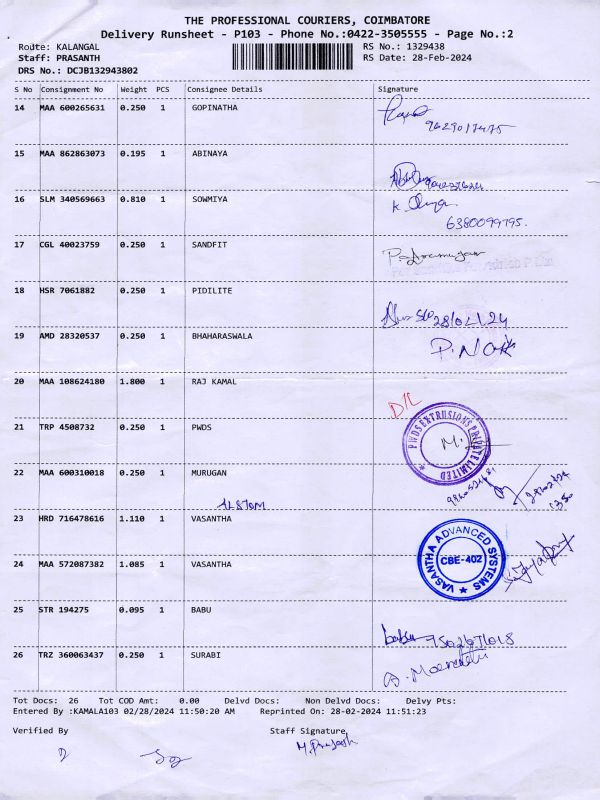 THE PROFESSIONAL COURIERS, COIMBATORE
Delivery Runsheet - P103 - Phone No.:0422-3505555 - Page No.:2
Route: KALANGAL
RS No.: 1329438
Staff: PRASANTH
RS Date: 28-Feb-2024
DRS No.: DCJB132943802
S No Consignment No Weight PCS Consignee Details Signature
14 MAA 600265631 0.250 1 GOPINATHA
15 MAA 862863073 0.195 1 ABINAYA
16 SLM 340569663 0.810 1 SOWMIYA
6380099795.
17 CGL 40023759 0.250 1 SANDFIT
18 HSR 7061882 0.250 1 PIDILITE
28/02/24
19 AMD 28320537 0.250 1 BHAHARASWALA
20 MAA 108624180 1.800 1 RAJ KAMAL
D/L
21 TRP 4508732 0.250 1 PWDS
PWDS EXTRUSIONS PRIVATE LIMITED
22 MAA 600310018 0.250 1 MURUGAN
23 HRD 716478616 1.110 1 VASANTHA
VASANTHA ADVANCED SYSTEMS
CBE-402
24 MAA 572087382 1.085 1 VASANTHA
25 STR 194275 0.095 1 BABU
babu
26 TRZ 360063437 0.250 1 SURABI
Tot Docs: 26 Tot COD Amt: 0.00 Delvd Docs: Non Delvd Docs: Delvy Pts:
Entered By :KAMALA103 02/28/2024 11:50:20 AM Reprinted On: 28-02-2024 11:51:23
Verified By Staff Signature